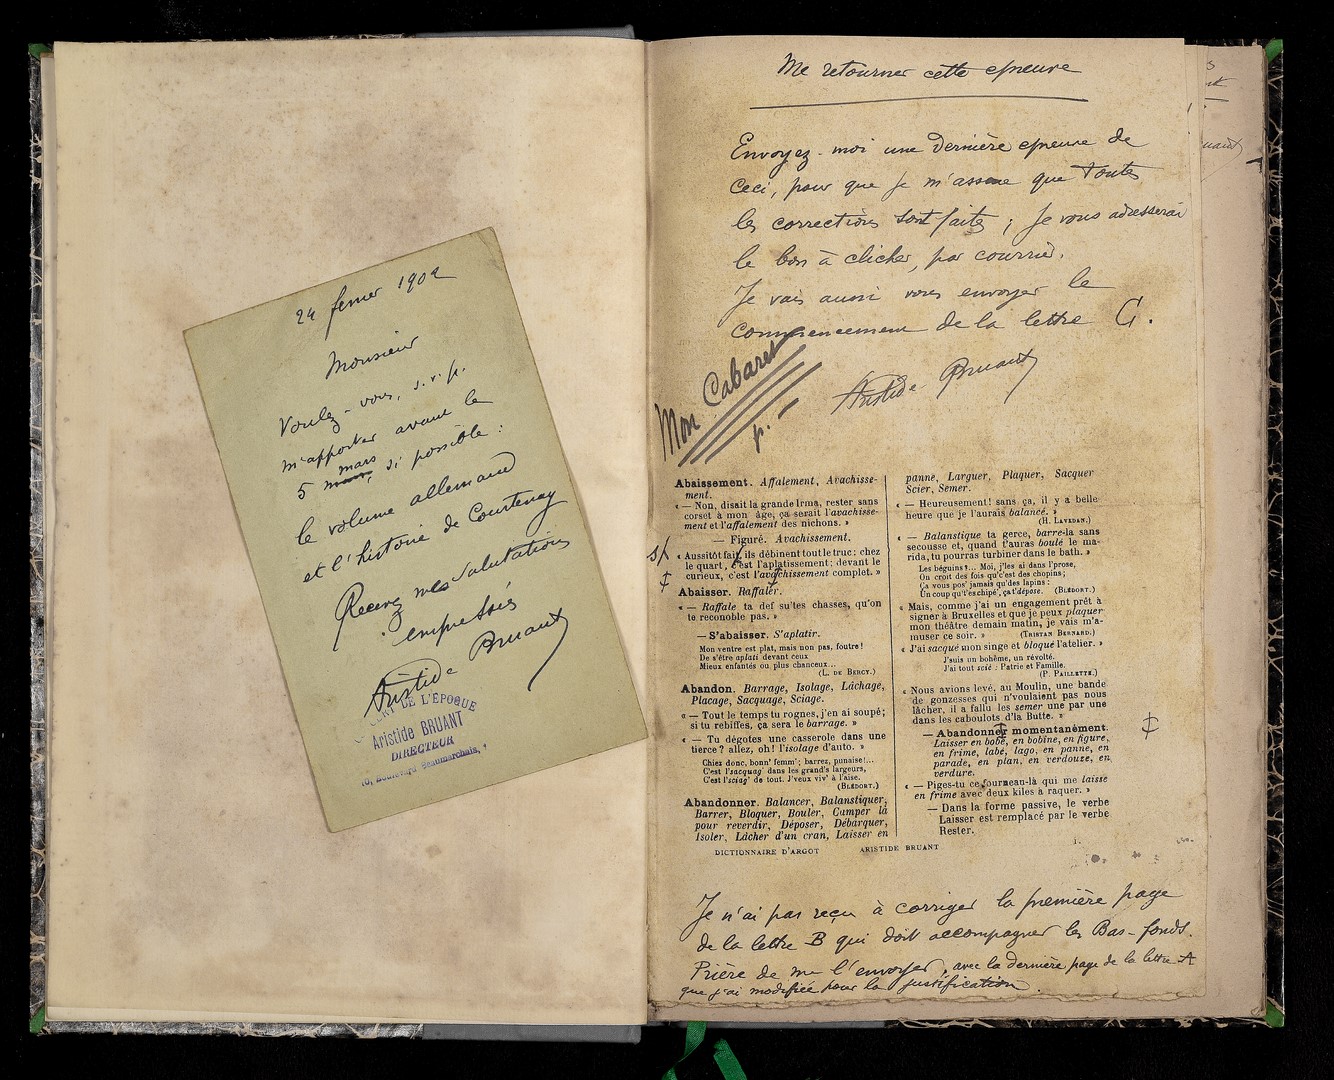 24 fevrier 1902
Monsieur
Voulez-vous, s.v.p.
m'apporter avant le
mars
5 mars, si possible :
le volume allemand
et l'histoire de Courtenay
Recevez mes salutations
empressées
Aristide Bruant
DE L'ÉPOQUE
Aristide BRUANT
DIRECTEUR
10, Boulevard Beaumarchais,
Me retourner cette épreuve
Envoyez-moi une dernière épreuve de
ceci, pour que je m'assure que toutes
les corrections sont faites ; je vous adresserai
le bon à clicher, par courrier.
Je vais aussi vous envoyer le
commencement de la lettre C.
Aristide Bruant
Mon Cabaret
p. 1
Abaissement. Affalement, Avachisse-
ment.
« — Non, disait la grande Irma, rester sans
corset à mon âge, ça serait l'avachisse-
ment et l'affalement des nichons. »
— Figuré. Avachissement.
s/
« Aussitôt fait, ils débinent tout le truc : chez
le quart, c'est l'aplatissement ; devant le
curieux, c'est l'avachissement complet. »
Abaisser. Raffaler.
« — Raffale ta def su'tes chasses, qu'on
te reconoble pas. »
— S'abaisser. S'aplatir.
Mon ventre est plat, mais non pas, foutre !
De s'être aplati devant ceux
Mieux enfantés ou plus chanceux...
(L. DE BERCY.)
Abandon. Barrage, Isolage, Lâchage,
Placage, Sacquage, Sciage.
« — Tout le temps tu rognes, j'en ai soupé ;
si tu rebiffes, ça sera le barrage. »
« — Tu dégotes une casserole dans une
tierce ? allez, oh ! l'isolage d'auto. »
Chiez donc, bonn' femm' ; barrez, punaise !...
C'est l'sacquag' dans les grand's largeurs,
C'est l'sciag' de tout. J'veux viv' à l'aise.
(BLÉDORT.)
Abandonner. Balancer, Balanstiquer,
Barrer, Bloquer, Bouler, Camper là
pour reverdir, Déposer, Débarquer,
Isoler, Lâcher d'un cran, Laisser en
panne, Larguer, Plaquer, Sacquer
Scier, Semer.
« — Heureusement ! sans ça, il y a belle
heure que je l'aurais balancé. »
(H. LAVEDAN.)
« — Balanstique ta gerce, barre-la sans
secousse et, quand t'auras boulé le ma-
rida, tu pourras turbiner dans le bath. »
Les béguins !... Moi, j'les ai dans l'prose,
On croit des fois qu'c'est des chopins ;
Ça vous pos' jamais qu'des lapins :
Un coup qu'l'es chipé, ça t'dépose. (BLÉDORT.)
« Mais, comme j'ai un engagement prêt à
signer à Bruxelles et que je peux plaquer
mon théâtre demain matin, je vais m'a-
muser ce soir. » (TRISTAN BERNARD.)
« J'ai sacqué mon singe et bloqué l'atelier. »
J'suis un bohème, un révolté.
J'ai tout scié : Patrie et Famille.
(P. PAILLETTE.)
« Nous avions levé, au Moulin, une bande
de gonzesses qui n'voulaient pas nous
lâcher, il a fallu les semer une par une
dans les caboulots d'la Butte. »
— Abandonner momentanément.
Laisser en bobe, en bobine, en figure,
en frime, labé, lago, en panne, en
parade, en plan, en verdouze, en
verdure.
« — Piges-tu ce fourneau-là qui me laisse
en frime avec deux kiles à raquer. »
— Dans la forme passive, le verbe
Laisser est remplacé par le verbe
Rester.
DICTIONNAIRE D'ARGOT ARISTIDE BRUANT 1.
Je n'ai pas reçu à corriger la première page
de la lettre B qui doit accompagner les Bas-fonds.
Prière de me l'envoyer, avec la dernière page de la lettre A
que j'ai modifiée pour la justification.